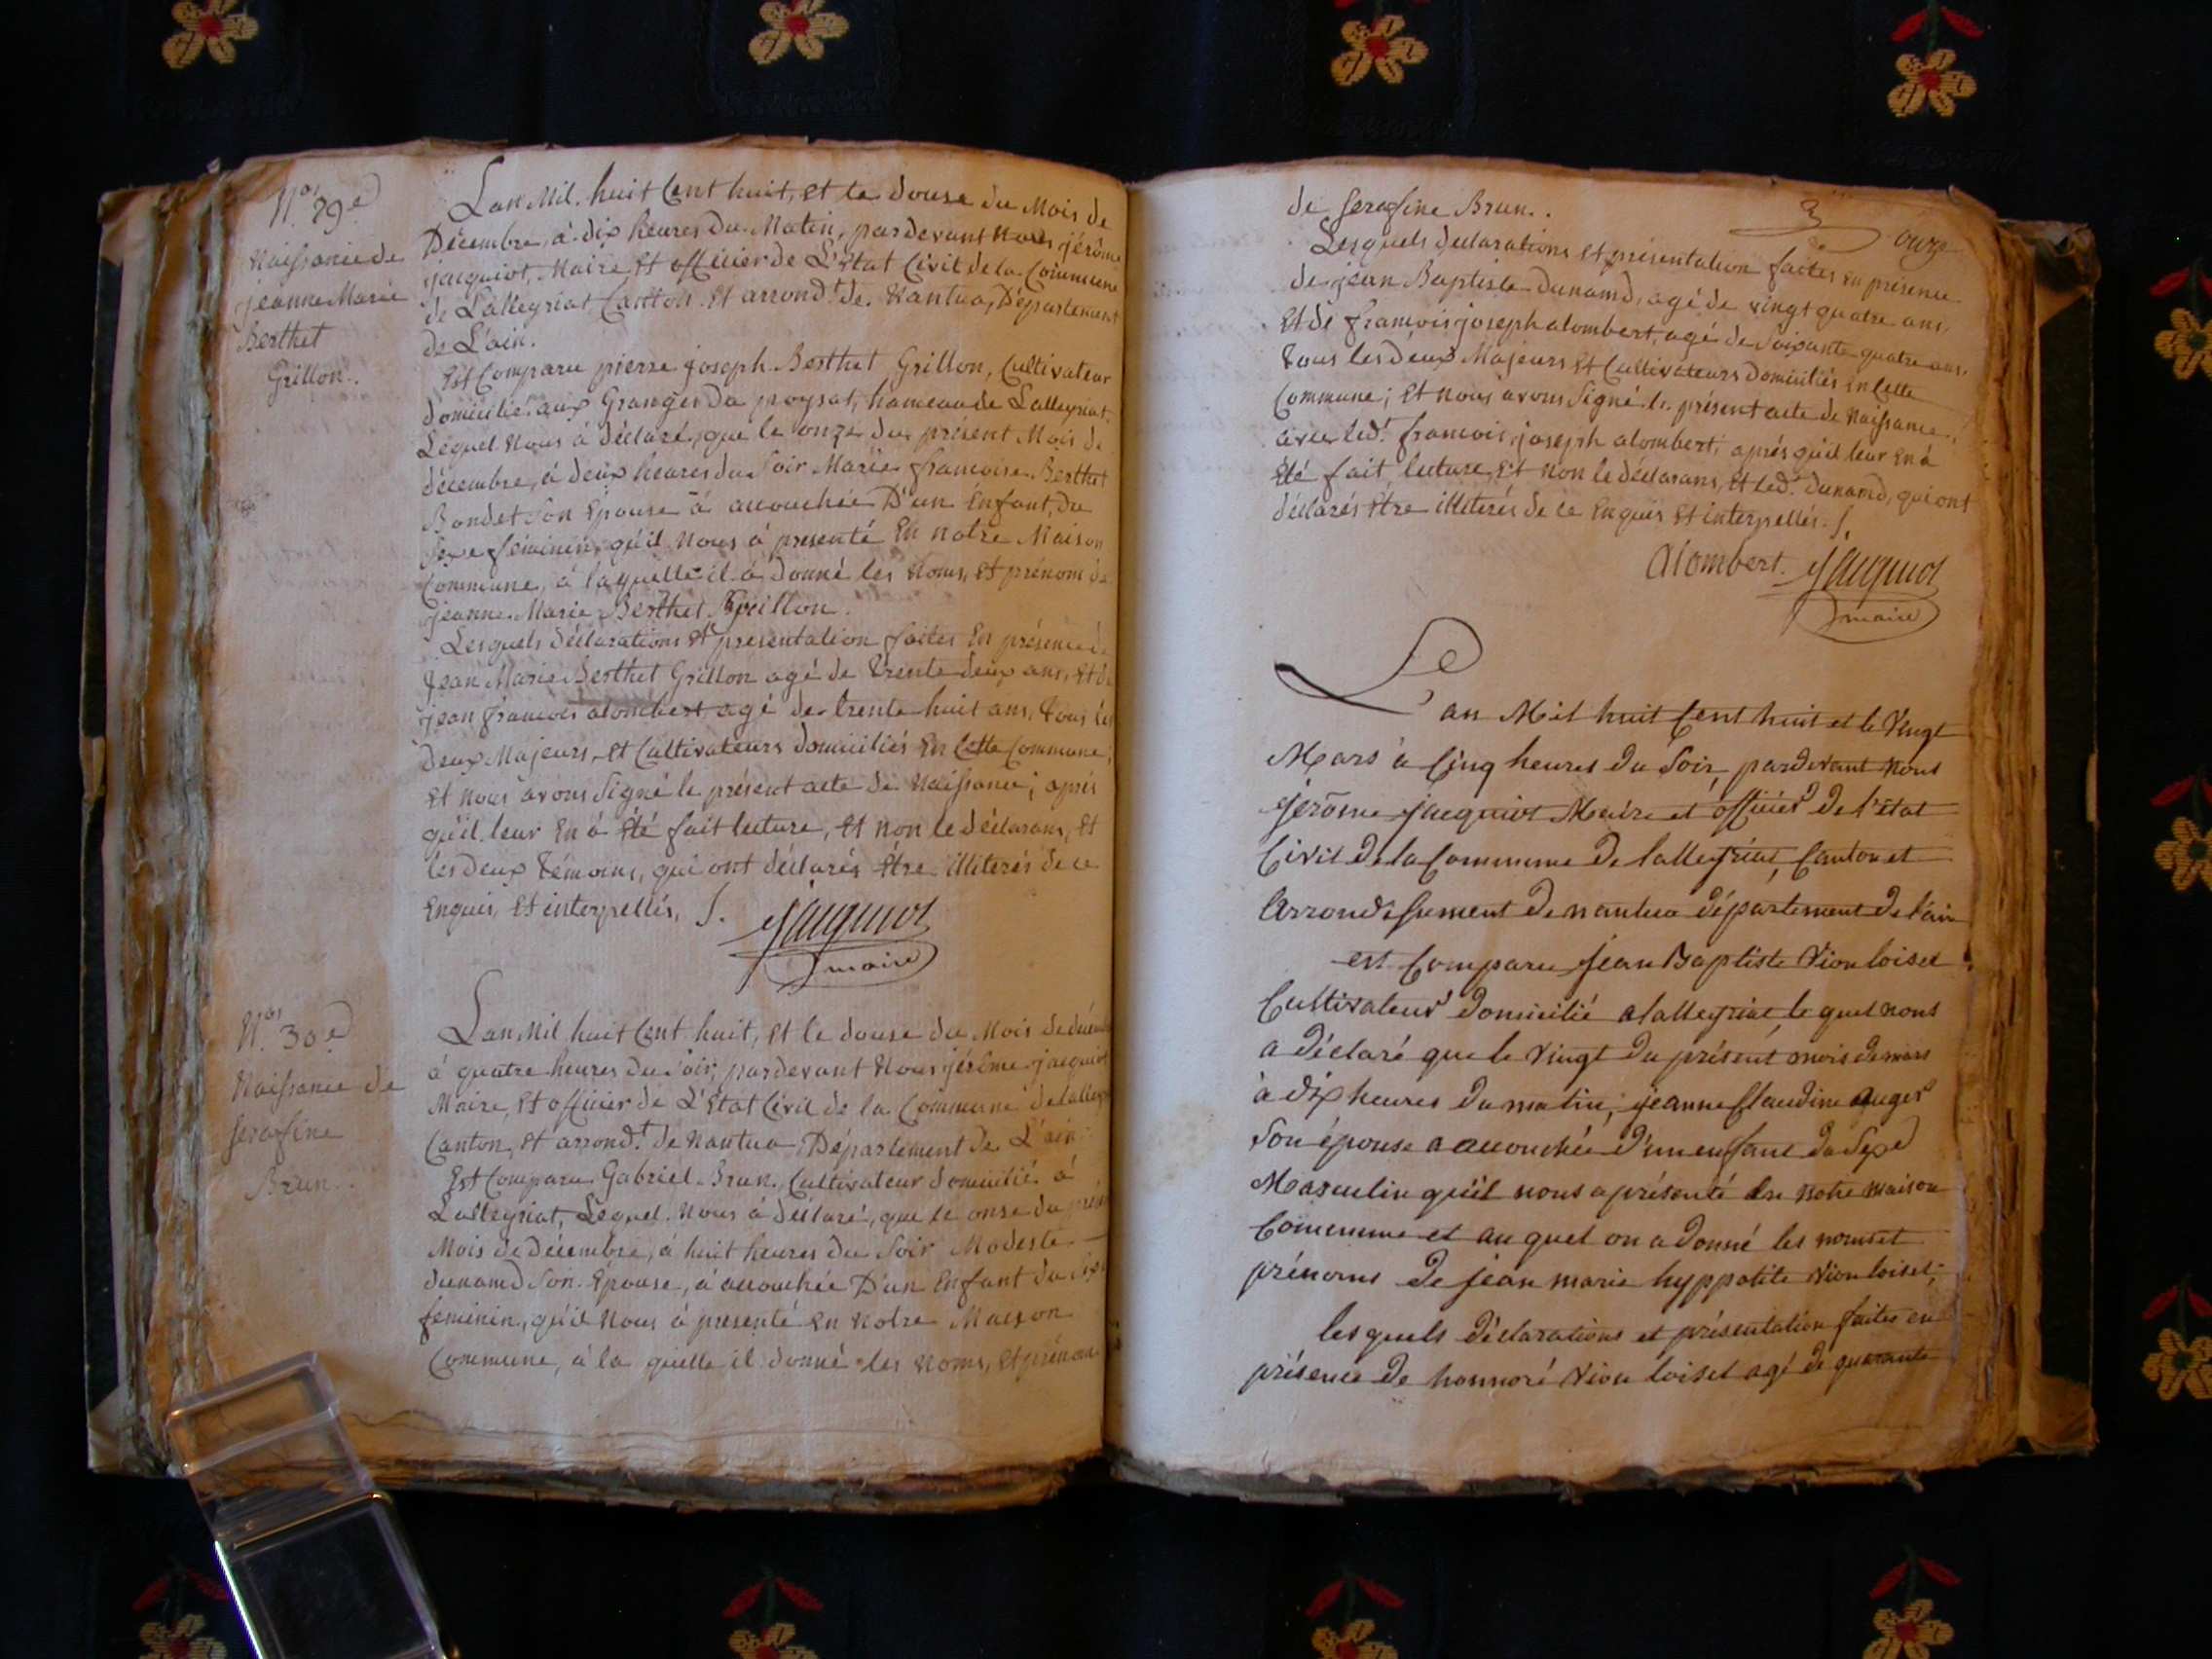 N.os 29.e
Naissance de
jeanne Marie
Berthet
Grillon.
Lan Mil, huit Cent huit, et le douse du Mois de
Décembre, à dix heures du Matin, pardevant nous jérôme
jacquiot, Maire et officier de L'Etat Civil de la Commune
de Lalleyriat, Canton et arrond.t de Nantua, Département
de L'ain.
Est Comparu pierre joseph Berthet Grillon, Cultivateur
domicilié aux Granges du poysat, hameau de Lalleyriat
Lequel nous à déclaré, que le onze du présent Mois de
décembre, à deux heures du Soir Marie françoise Berthet
Bondet Son Epouse à accouchée D'un Enfant, du
Sexe feminin, qu'il nous à presenté En notre Maison
Commune, à laquelle il à donné les Noms, et prénom de
jeanne Marie Berthet Grillon.
Lesquels déclarations et presentation faites En présence de
Jean Marie Berthet Grillon agé de trente deux ans, et de
jean françois alombert agé de trente huit ans, tous les
deux Majeurs, et Cultivateurs domiciliés En Cette Commune;
Et nous avons Signé le présent acte de Naissance; aprés
qu'il leur En à été fait lecture, et non le déclarans, et
les deux témoins, qui ont déclarés être illiterés de ce
Enquis, et interpellés. /.
Jacquiot
maire
N.os 30.e
Naissance de
serafine
Brun.
Lan Mil huit Cent huit, et le douse du Mois de décembre
à quatre heures du Soir, pardevant Nous jérôme jacquiot
Maire, et officier de L'Etat Civil de la Commune de lalleyriat
Canton, et arrond.t de Nantua Département de L'ain
Est Comparu Gabriel Brun, Cultivateur domicilié à
Lalleyriat, Lequel Nous à déclaré, que le onse du présent
Mois de Décembre, à huit heures du Soir Modeste
dunamd Son Épouse, à accouchée D'un Enfant du sexe
feminin, qu'il Nous à presenté En Notre Maison
Commune, à la quelle il donné les Noms, et prénom
onze
de serafine Brun.
Lesquels declarations et présentation faites En présence
de jean Baptiste dunamd, agé de vingt quatre ans,
Et de françois joseph alombert, agé de Soixante quatre ans,
tous les deux Majeurs et Cultivateurs domiciliés En Cette
Commune; Et nous avons Signé le présent acte de Naissance,
avec led.t françois joseph alombert, aprés qu'il leur En à
été fait lecture, Et non le déclarans, et led.t dunamd, qui ont
déclarés être illiterés de ce Enquis et interpellés. /.
Alombert. Jacquiot
maire
L'an Mil huit Cent huit et le Vingt
Mars à Cinq heures du Soir, pardevant nous
jerôme jacquiot Maire et officier de l'état
Civil de la Commune de lalleyriat, Canton et
Arrondissement de nantua département de l'ain
est Comparu jean Baptiste Vion loisel
Cultivateur domicilié a lalleyriat, le quel nous
a déclaré que le vingt du présent mois de mars
à dix heures du matin, jeanne Claudine auger
Son épouse a accouchée d'un enfant du Sexe
Masculin qu'il nous a présenté en notre maison
Commune et au quel on a donné les noms et
prénoms de jean marie hyppolite Vion loisel;
les quels déclarations et présentation faites en
présence de honnoré Vion loisel agé de quarante